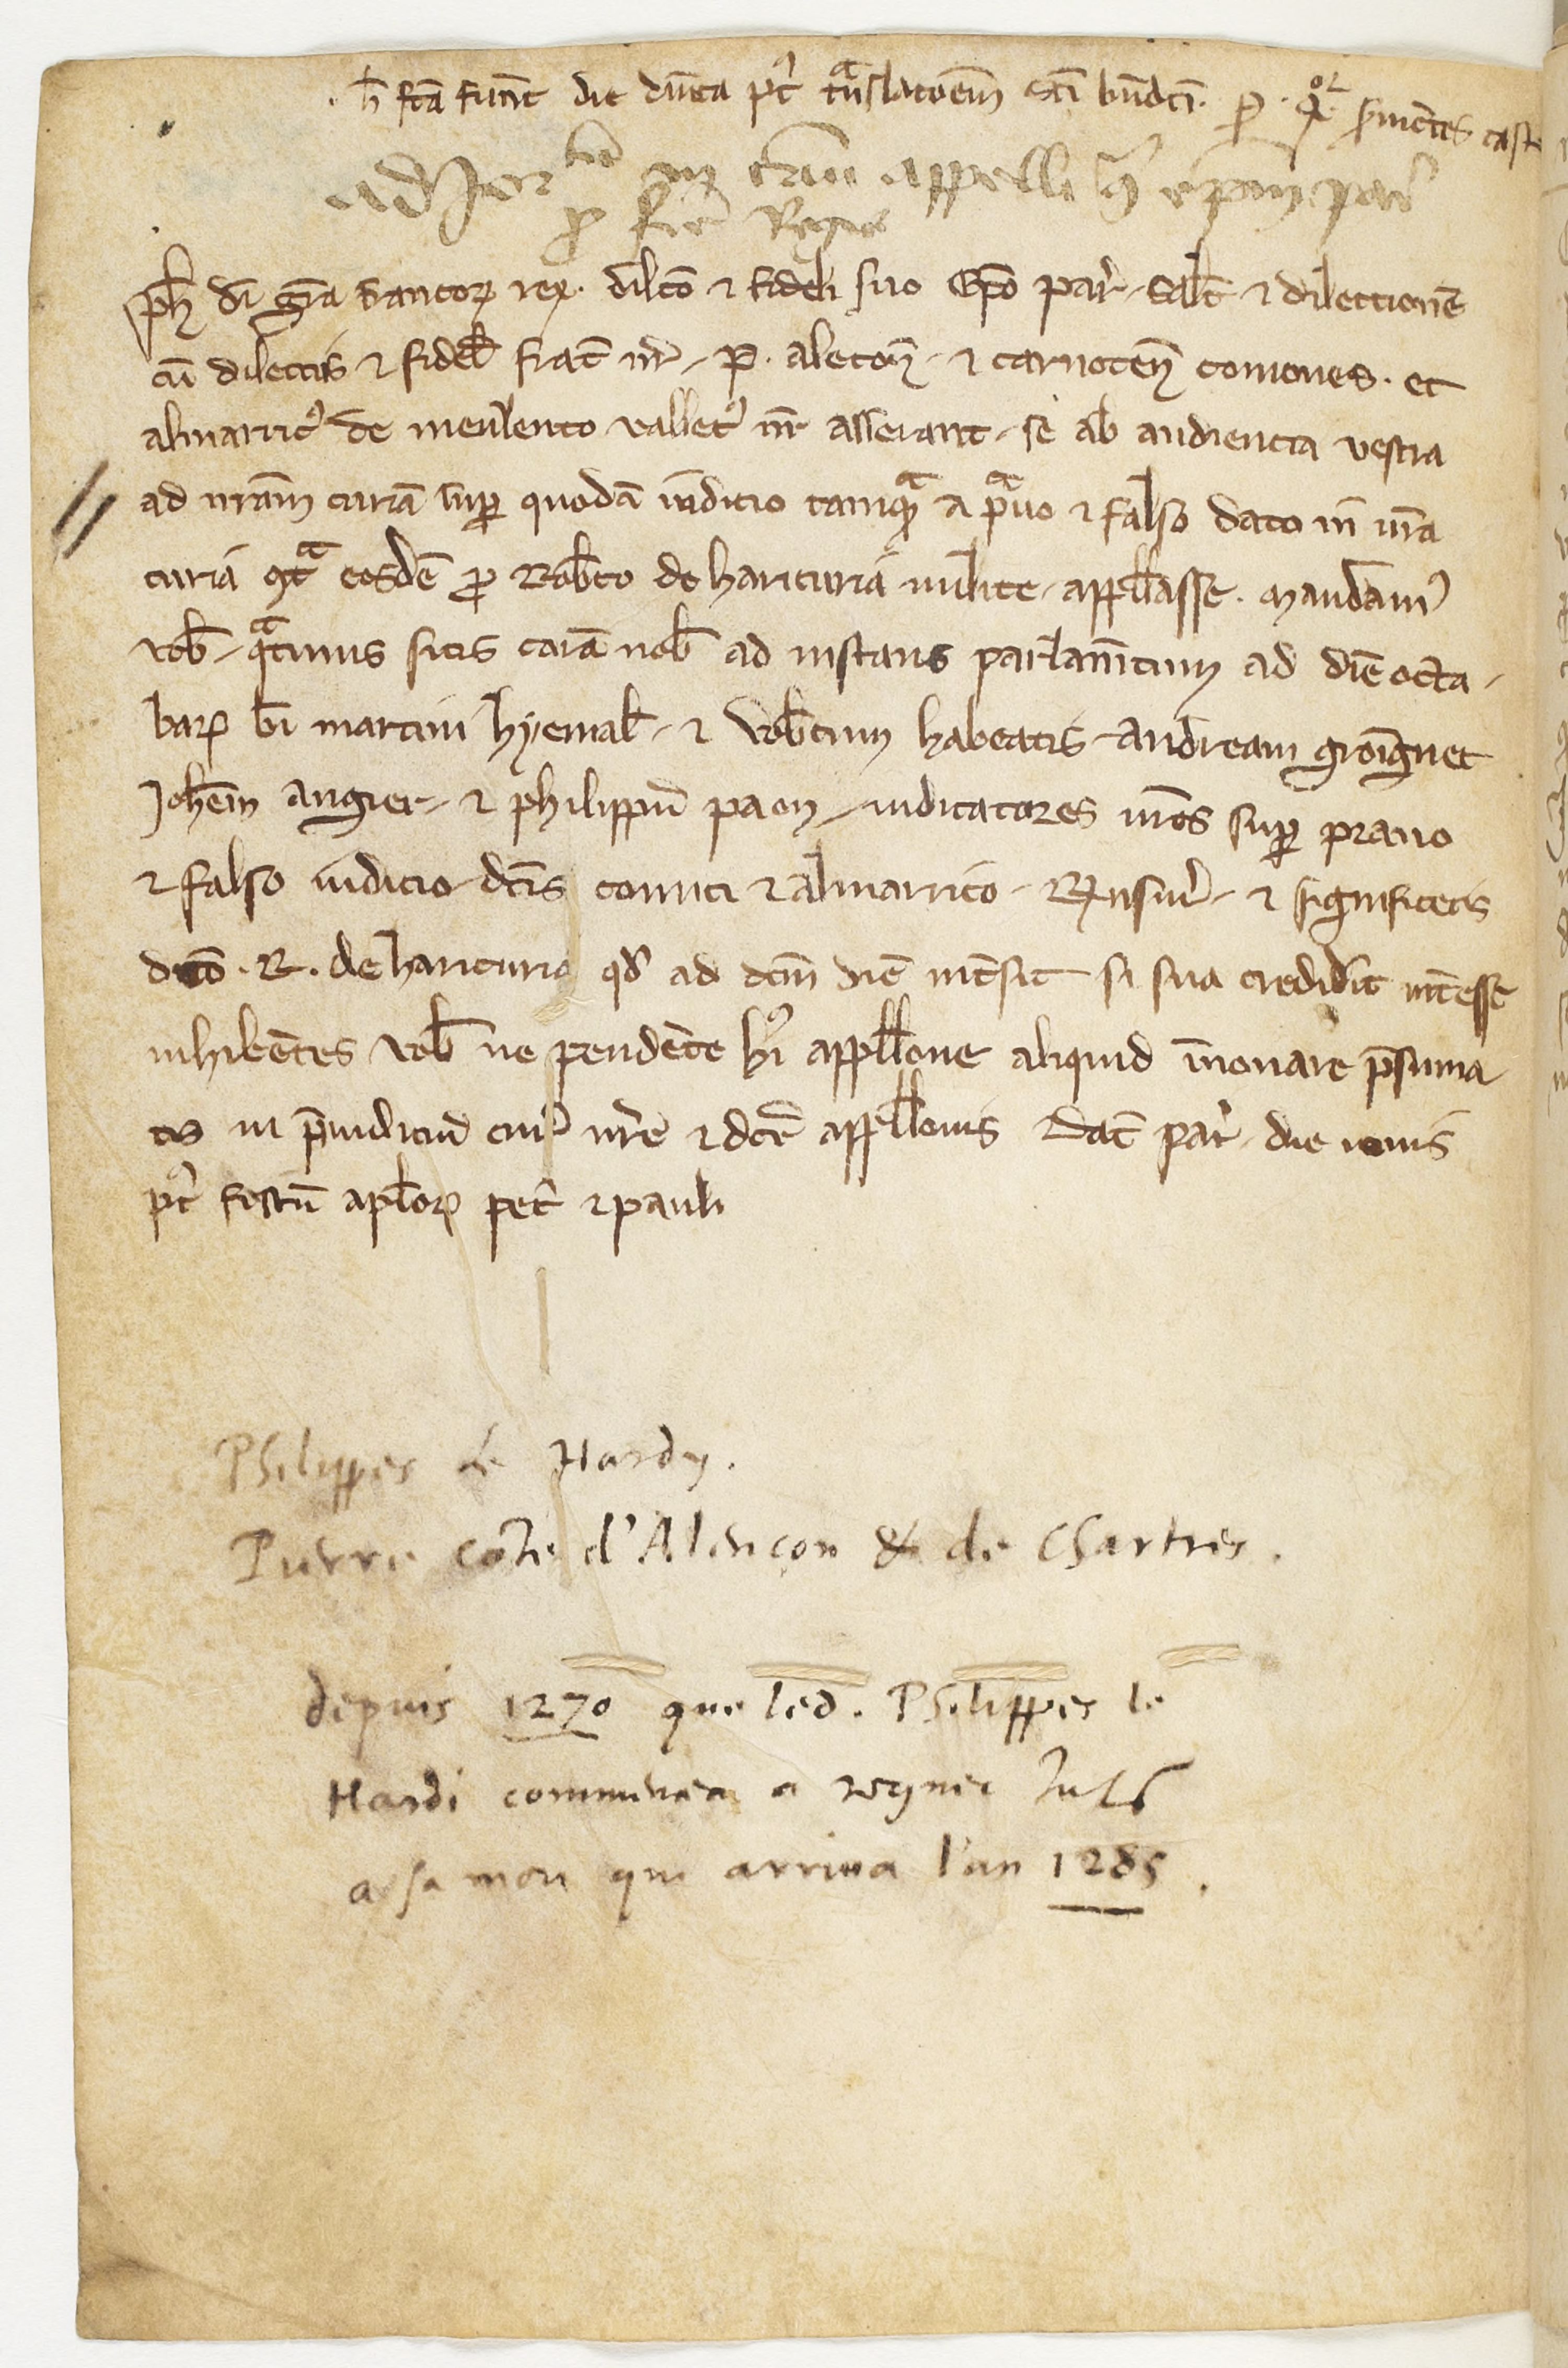 h̄ fcā fuūt die dn̄ica pꝰt tᵃnslatoēm Sc̄i bn̄dcī. ꝑ .qᵒʳ. ẜuiētes cast
ad
cām appell
Regis
Ph̄ dī grā francoꝝ rex. dilc̄o ⁊ fideli suo Ep̄o par̄. Salt̄ ⁊ dilectionē
cū dilectus ⁊ fidel̄ frat̄ nr̄. P. alecon̄. ⁊ carnoten̄ comes. et
almarricꝰ de meullento valletꝰ nr̄ asserant. se ab audiencia vestra
ad nrām curiā suꝑ quodā iudicio tamqᵃ a pᵃuo ⁊ falso dato in vrā
curia ꝯtᵃ eosdē ꝓ Rob̄to de haricuria milite. appell̄asse. mandamꝰ
vob̄. qᵃtinus sitis corā nob̄ ad instans parlam̄tum ad diē octa-
baꝝ bī martini hyemal̄. ⁊ vob̄cum habeatis Andream groignet
Joh̄em augier. ⁊ philippū paon. iudicatores vr̄os suꝑ prauo
⁊ falso iudicio dc̄is comiti ⁊ almarrico. Rn̄sur̄. ⁊ significetis
dicto .R. de haricuria qd̄ ad dc̄m diē int̄sit si sua crediderit int̄esse
inhibētes vob̄ ne pendēte hꝰi appell̄one aliquid īnouare p̄suma
tis in p̄iudiciū cur̄ nr̄e ⁊ dc̄e appell̄onis Dat̄ par̄. die ueneris
pꝰt festū apl̄oꝝ pet̄ ⁊ pauli
Philippes le Hardy.
Pierre cōte d'Alençon & de Chartres.
depuis 1270 que led. Philippes le
Hardi commença a regner iusq
a sa mort qui arriua l'an 1285.